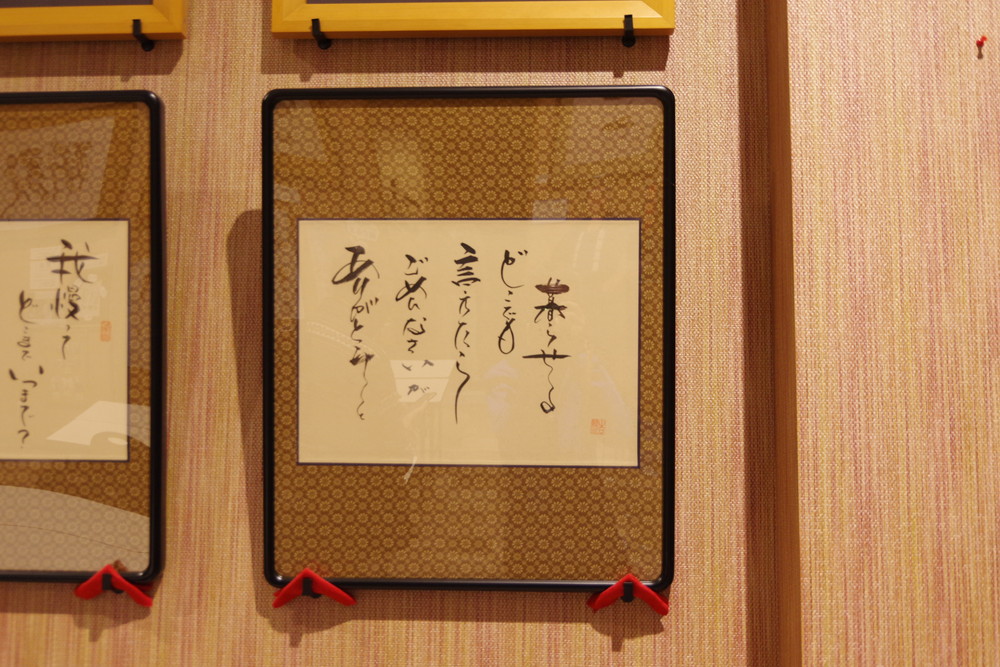 我慢って
どこまでいつまで?
ありがとうと
ごめんなさいが
言えたら
どこでも
暮らせる